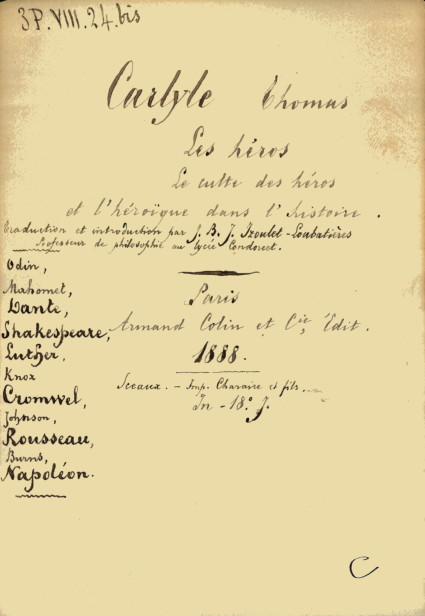 3P.VIII.24.bis
Carlyle Thomas
Les héros
Le culte des héros
et l'héroïque dans l'histoire.
Traduction et introduction par J. B. J. Izoulet-Loubatières
Professeur de philosophie au lycée Condorcet.
Odin,
Mahomet,
Dante,
Shakespeare,
Luther,
Knox
Cromwel,
Johnson,
Rousseau,
Burns,
Napoléon.
Paris
Armand Colin et Cie, Édit.
1888.
Sceaux. – Imp. Charaire et fils.
In-18° J.
C